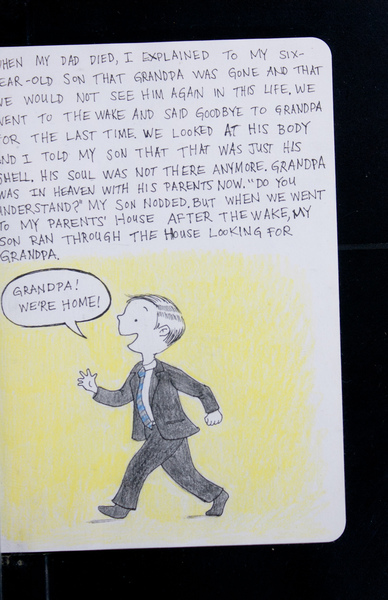 HEN MY DAD DIED, I EXPLAINED TO MY SIX-
EAR-OLD SON THAT GRANDPA WAS GONE AND THAT
WE WOULD NOT SEE HIM AGAIN IN THIS LIFE. WE
WENT TO THE WAKE AND SAID GOODBYE TO GRANDPA
FOR THE LAST TIME. WE LOOKED AT HIS BODY
AND I TOLD MY SON THAT THAT WAS JUST HIS
SHELL. HIS SOUL WAS NOT THERE ANYMORE. GRANDPA
WAS IN HEAVEN WITH HIS PARENTS NOW. "DO YOU
UNDERSTAND?" MY SON NODDED. BUT WHEN WE WENT
TO MY PARENTS' HOUSE AFTER THE WAKE, MY
SON RAN THROUGH THE HOUSE LOOKING FOR
GRANDPA.
GRANDPA!
WE'RE HOME!